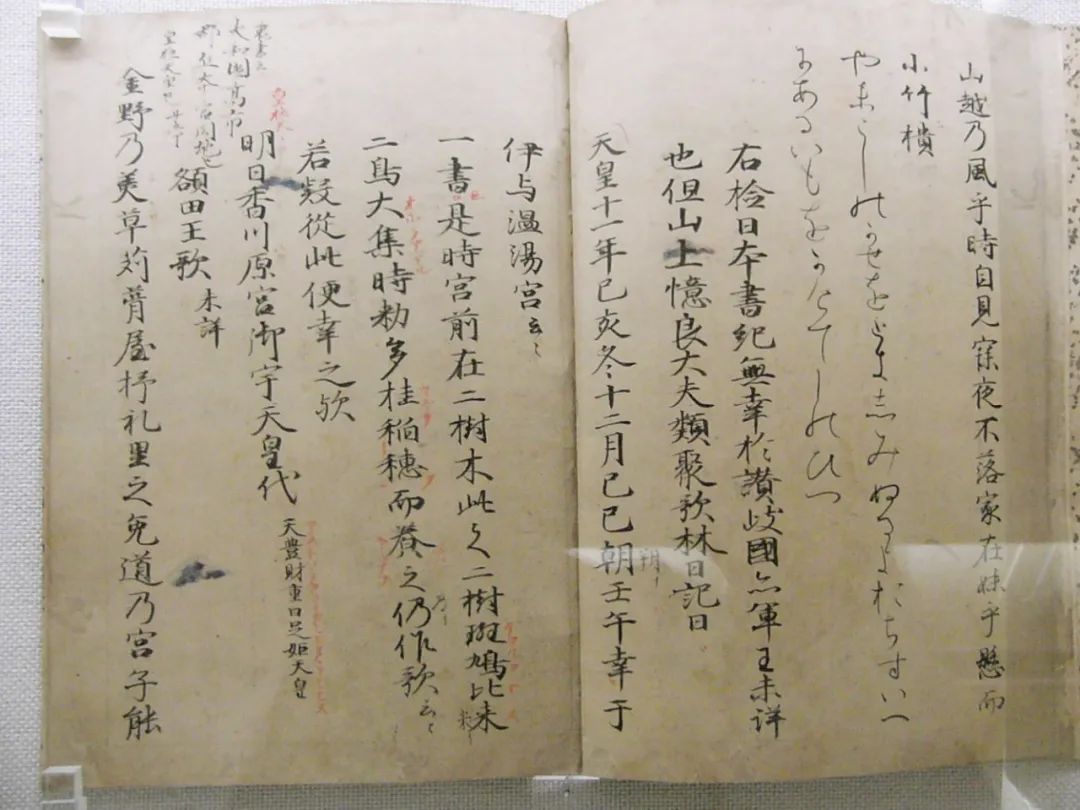 山越乃風乎時自見寐夜不落家在妹乎懸而
小竹樻
やまこしのかせをときしみぬるよおちすいへ
にあるいもをかけてしのひつ
右検日本書紀無幸於讃岐國亦軍王未詳
也但山上憶良大夫類聚歌林曰記曰
天皇十一年己亥冬十二月己巳朔壬午幸于
伊与温湯宮云々
一書是時宮前在二樹木此之二樹斑鳩比米
二鳥大集時勅多桂稲穂而養之仍作歌云々
若疑従此便幸之歟
明日香川原宮御宇天皇代 天豊財重日足姫天皇
額田王歌 未詳
大和國高市
金野乃美草苅葺屋杼礼里之兎道乃宮子能